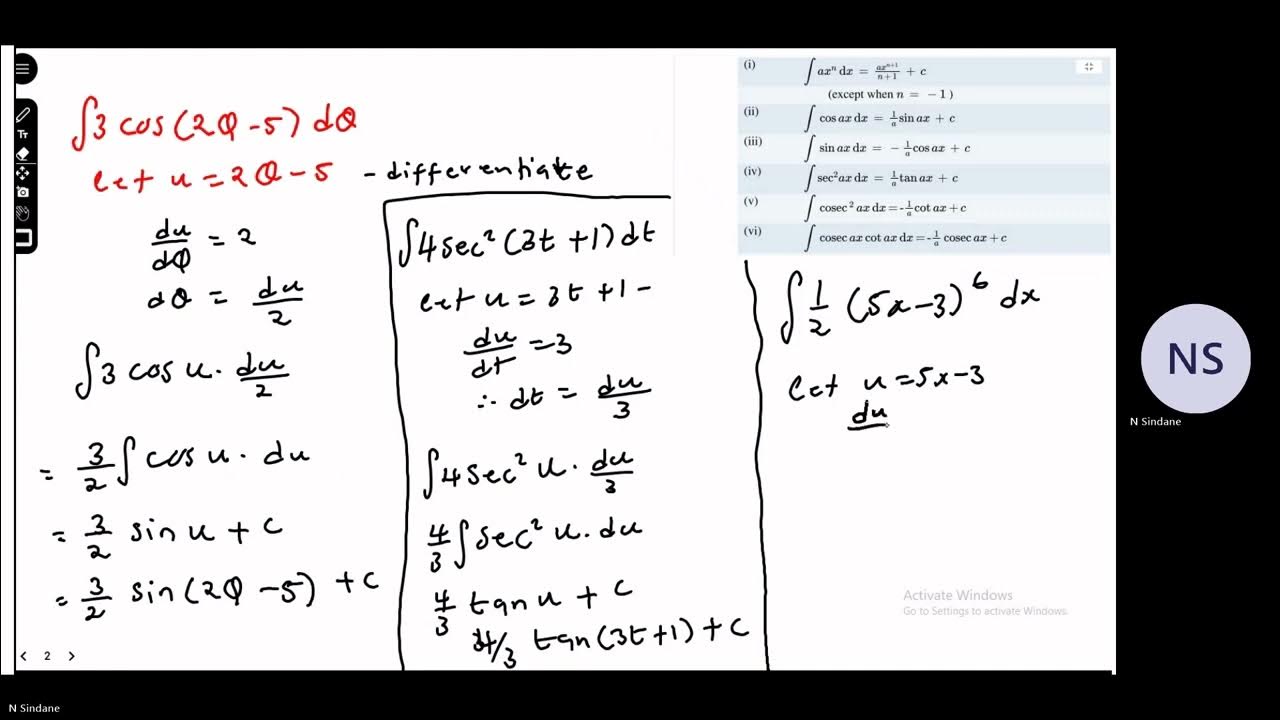 ∫3 cos(2θ-5) dθ
let u = 2θ-5 - differentiate
du/dθ = 2
dθ = du/2
∫3 cos u · du/2
= 3/2 ∫ cos u · du
= 3/2 sin u + c
= 3/2 sin(2θ-5) + c
∫4sec² (3t +1) dt
let u = 3t +1 -
du/dt = 3
∴ dt = du/3
∫4sec² u · du/3
4/3 ∫ sec² u · du
4/3 tan u + c
4/3 tan(3t+1) + c
(i) ∫ axⁿ dx = axⁿ⁺¹/n+1 + c
(except when n = -1 )
(ii) ∫ cos ax dx = 1/a sin ax + c
(iii) ∫ sin ax dx = - 1/a cos ax + c
(iv) ∫ sec²ax dx = 1/a tan ax + c
(v) ∫ cosec² ax dx =-1/a cot ax + c
(vi) ∫ cosec ax cot ax dx =-1/a cosec ax + c
∫ 1/2 (5x-3)⁶ dx
let u = 5x-3
du
Activate Windows
Go to Settings to activate Windows.
Tт
2
NS
N Sindane
N Sindane